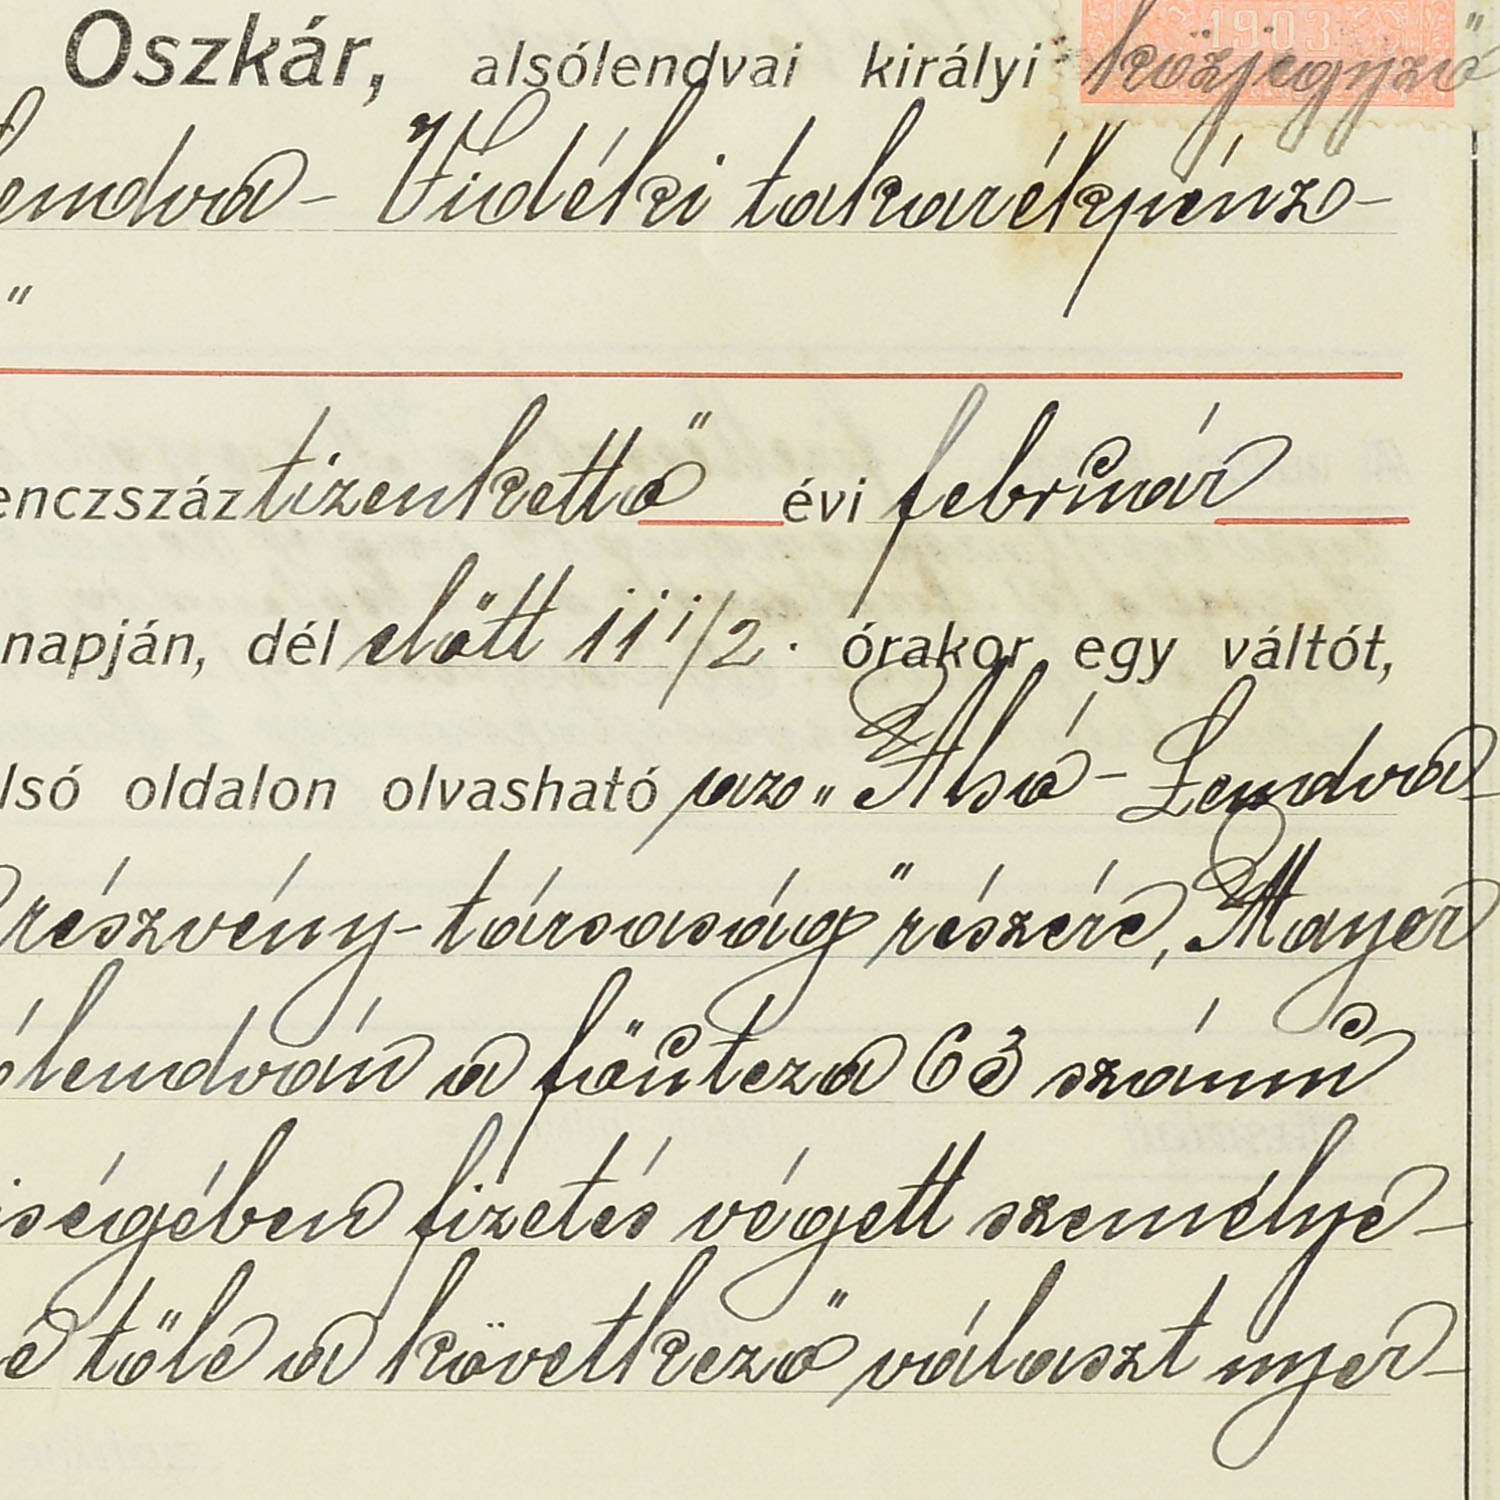 Oszkár, alsólendvai királyi közjegyző
Lendva- Vidéki takarékpénz-
"
enczszáz tizenkettő évi február
napján, dél előtt 11 1/2. órakor egy váltót,
lső oldalon olvasható az „Alsó-Lendva-
részvény-társaság" részére, Mayer
lendván a főutcza 63 számú
iségében fizetés végett személye-
e tőle a következő választ nyer-